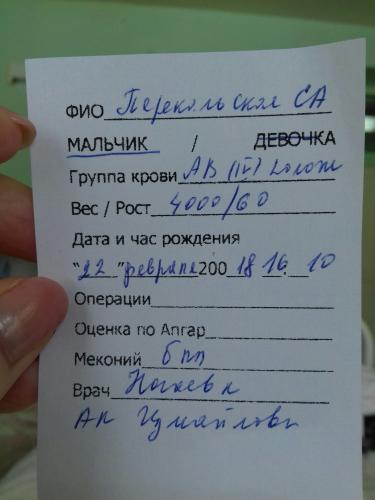 ФИО Перекольская СА
МАЛЬЧИК / ДЕВОЧКА
Группа крови АВ (IV) полож
Вес / Рост 4000/60
Дата и час рождения
"22" февраля 200 18 16 10
Операции
Оценка по Апгар
Меконий бпп
Врач
Ак Цумайлова